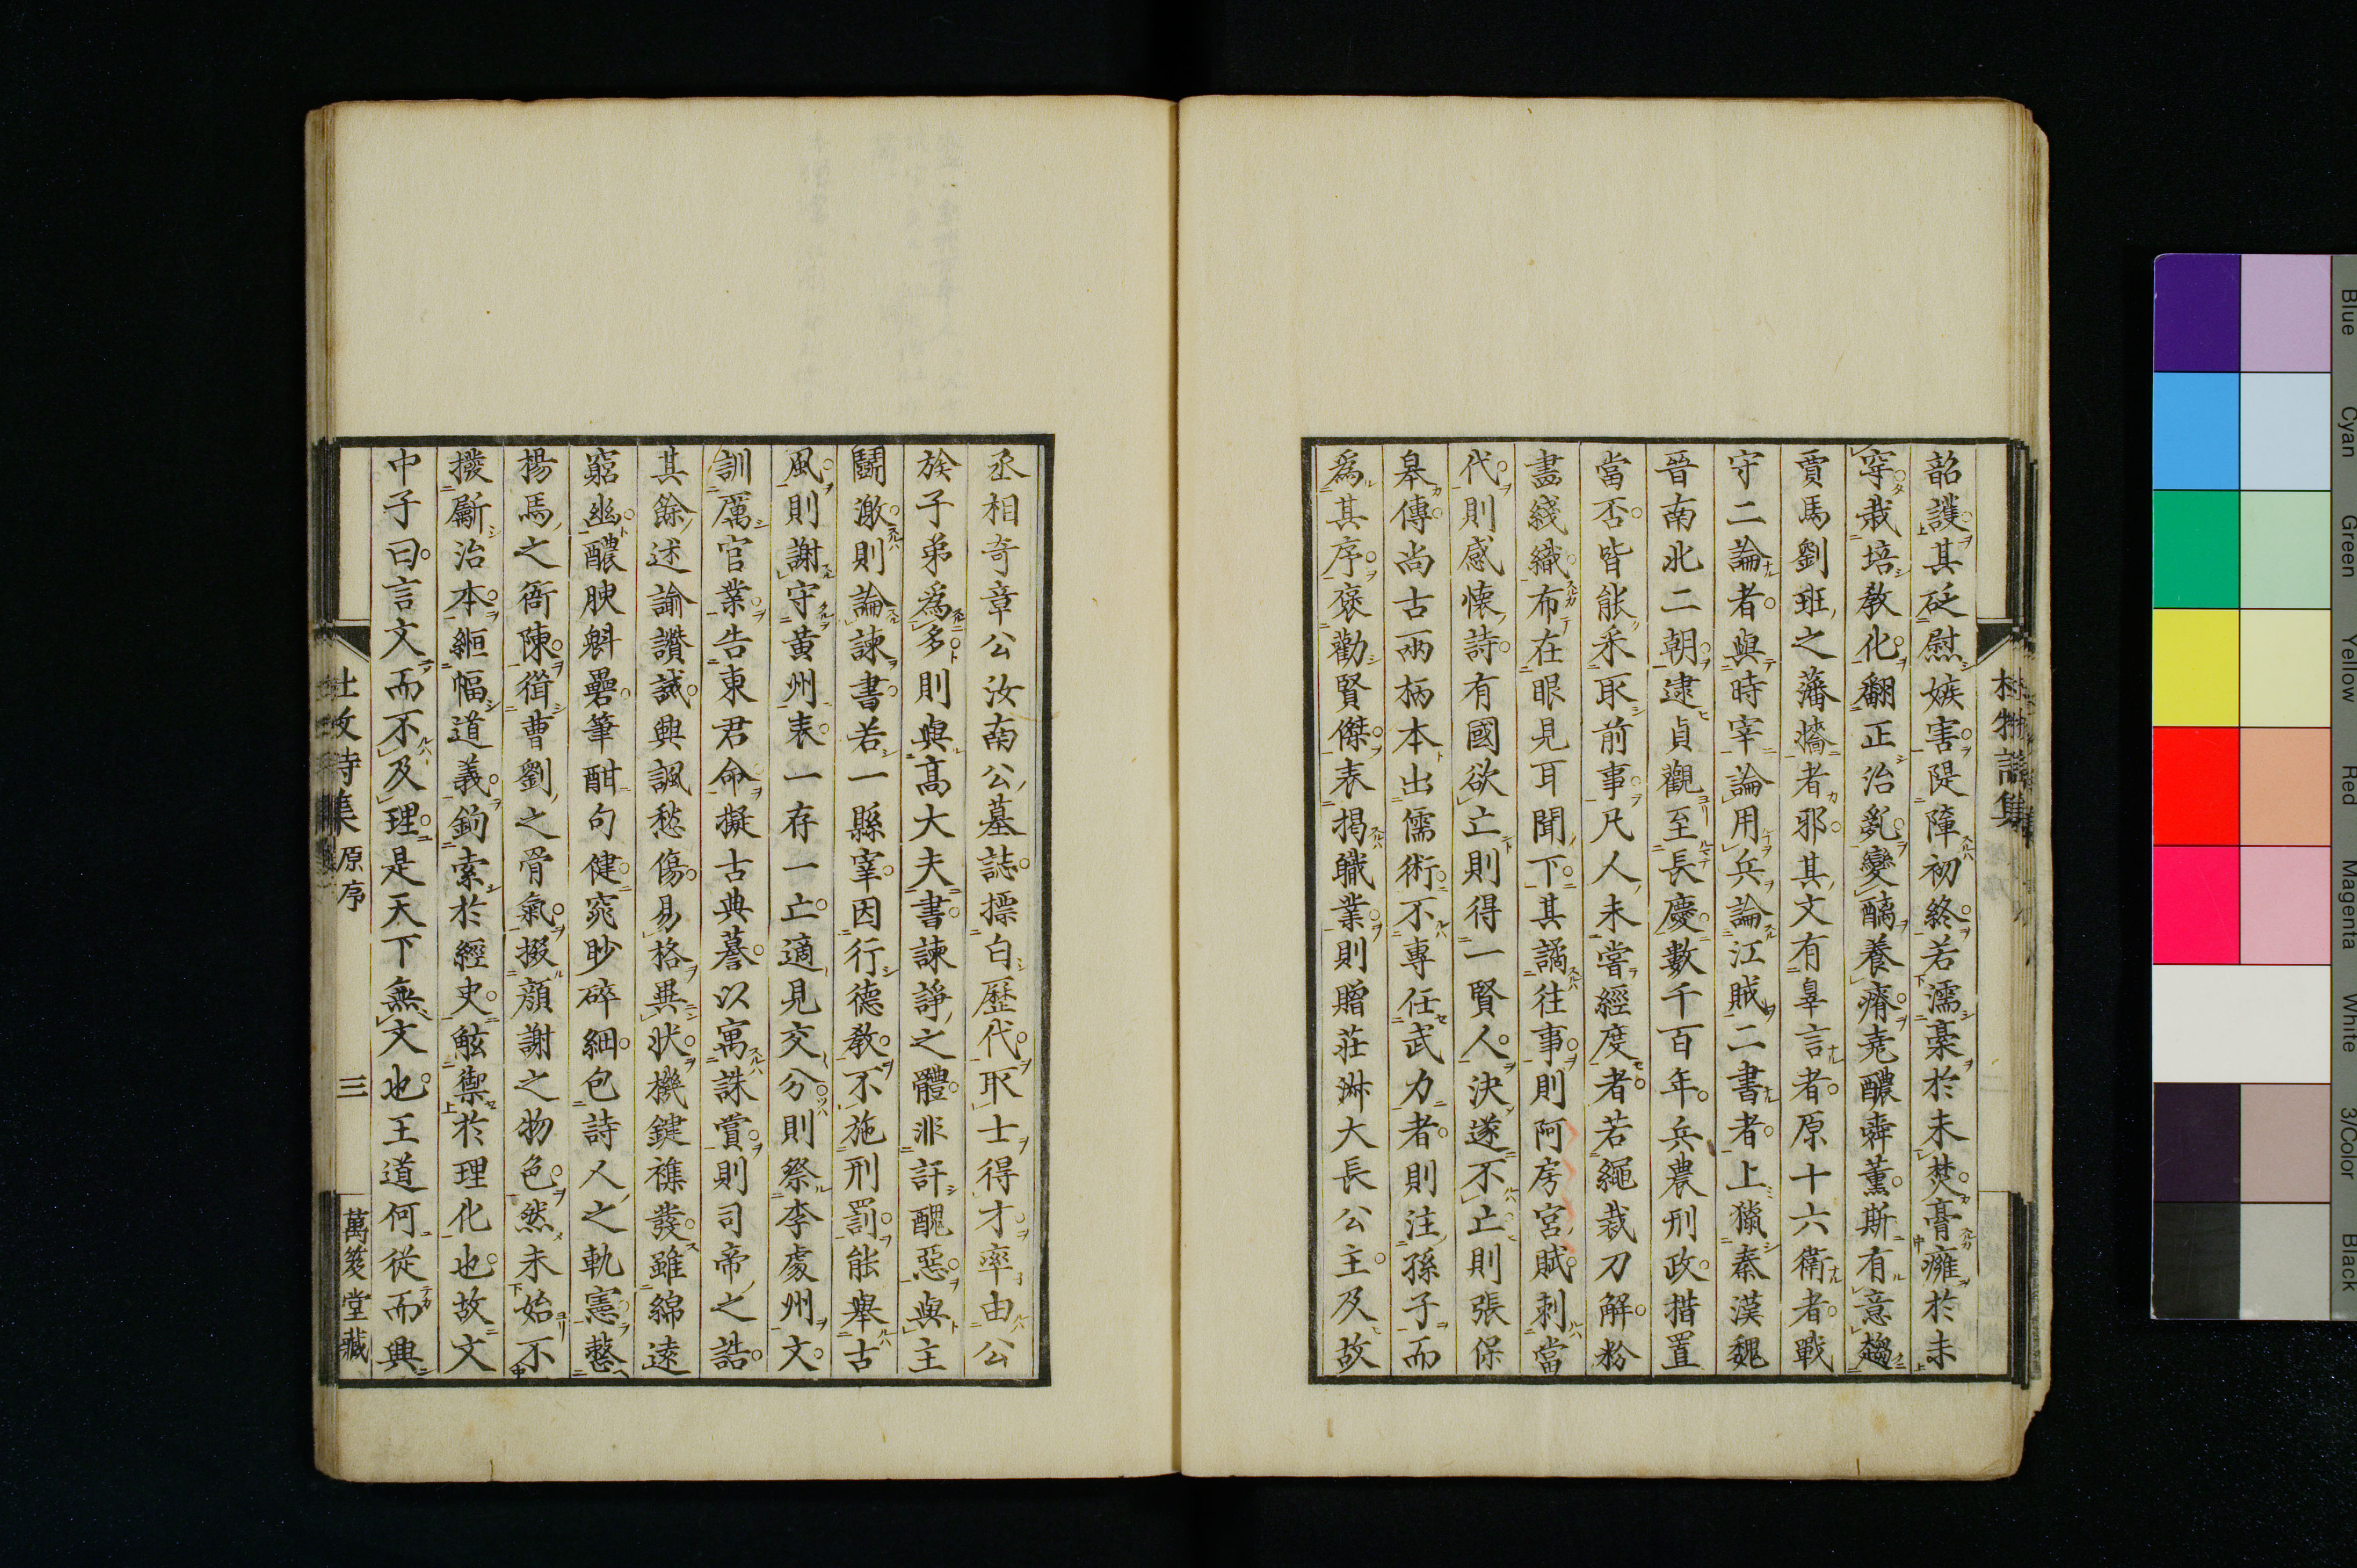 韶護其砭慰嫉害隄障初終若濡槀於未焚膏癰於未
穿栽培敎化翻正治亂變醨養瘠堯醲舜薰斯有意趨
賈馬劉班之藩牆者邪其文有辠言者原十六衛者戰
守二論者與時宰論用兵論江賊二書者上獵秦漢魏
晉南北二朝逮貞觀至長慶數千百年兵農刑政措置
當否皆能釆取前事凡人未嘗經度者若繩裁刀解粉
畫綫織布在眼見耳聞下其譎往事則阿房宮賦刺當
代則感懷詩有國欲亡則得一賢人決遂不亡則張保
皋傳尚古兩柄本出儒術不專任武力者則注孫子而
爲其序褒勸賢傑表揭職業則贈莊淋大長公主及故
丞相奇章公汝南公墓誌摽白歷代取士得才率由公
族子弟爲多則與高大夫書諫諍之體非訐醜惡與主
鬭激則論諫書若一縣宰因行德敎不施刑罰能舉古
風則謝守黃州表一存一亡適見交分則祭李處州文
訓厲官業告東君命擬古典謩以寓誅賞則司帝之誥
其餘述諭讚誡興諷愁傷易格異狀機鍵雜發雖綿遠
窮幽醲腴魁礨筆酣句健窕眇碎細包詩人之軌憲整
揚馬之衙陳聳曹劉之骨氣掇顏謝之物色然未始不
撥斸治本絙幅道義鉤索於經史觝禦於理化也故文
中子曰言文而不及理是天下無文也王道何從而興
杜牧詩集 原序 三 萬笈堂藏